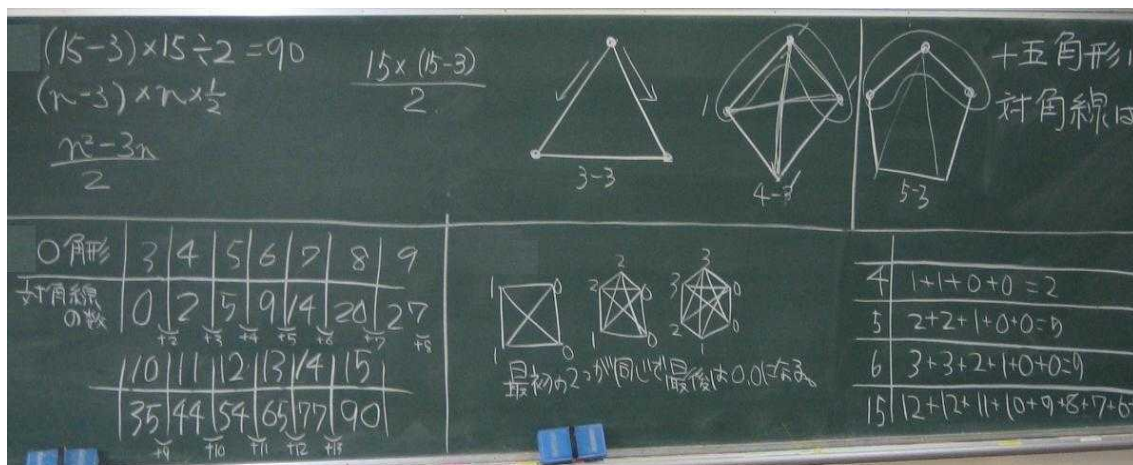 (15-3)×15÷2=90
(n-3)×n×1/2
n²-3n/2
15×(15-3)/2
3-3
4-3
1
5-3
十五角形
対角線は
○角形 3 4 5 6 7 8 9
対角線の数 0 2 5 9 14 20 27
+2 +3 +4 +5 +6 +7 +8
10 11 12 13 14 15
35 44 54 65 77 90
+9 +10 +11 +12 +13
1 0 1 0
2 2 0 1 0
3 3 0 2 0 1
最初の2つが同じで最後は0,0になる。
4 1+1+0+0=2
5 2+2+1+0+0=5
6 3+3+2+1+0+0=9
15 12+12+11+10+9+8+7+6